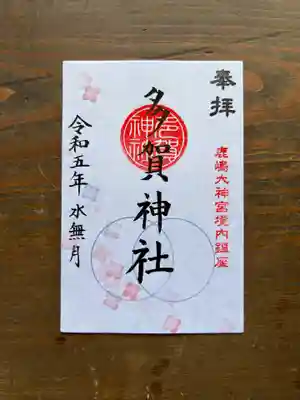 奉拝
鹿嶋大神宮境内鎮座
多賀神社
多賀神社
令和五年 水無月